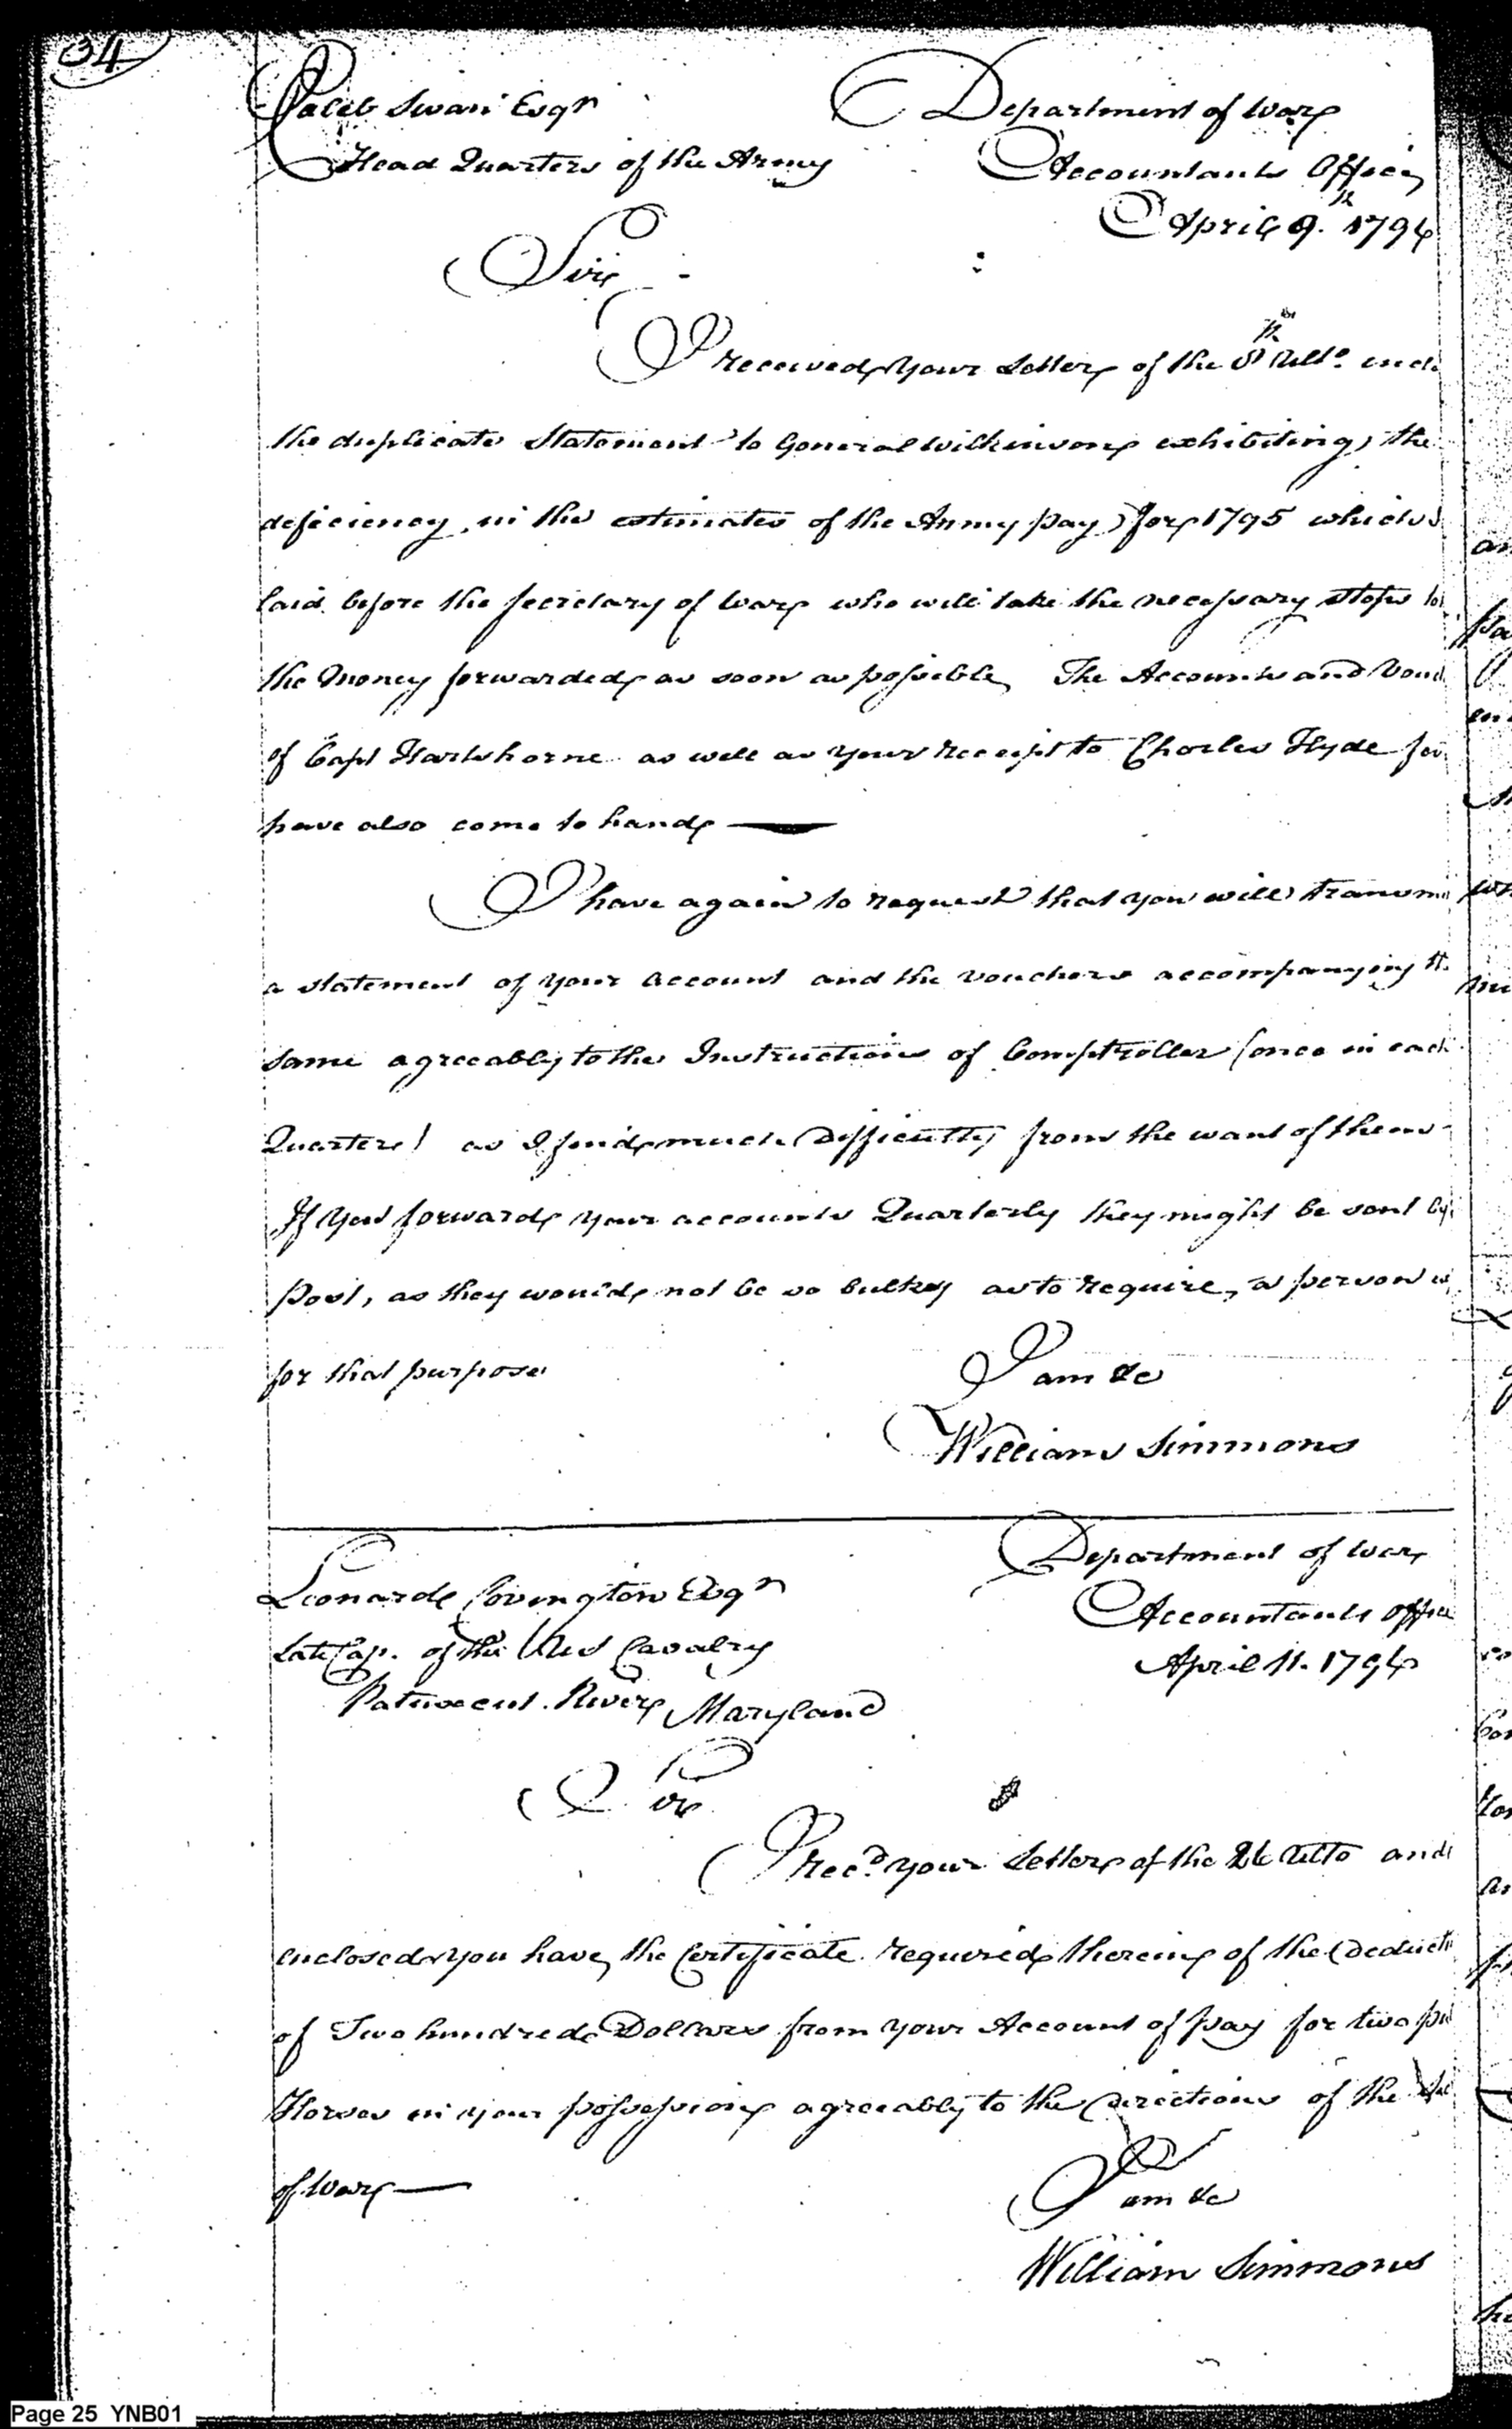 34
Caleb Swan Esqr Department of War
Head Quarters of the Army Accountants Office
April 9.th 1796
Sir
I received your Letter of the 8th Ulto. incl
the duplicate Statement to General Wilkinson exhibiting the
deficiency in the estimates of the Army pay for 1795 which
laid before the Secretary of War who will take the necessary steps to
the Money forwarded as soon as possible The Accounts and Vouch
of Capt Hartshorne as well as your receipt to Charles Hyde for
have also come to hand
I have again to request that you will transmi
a statement of your account and the vouchers accompanying th
same agreeably to the Instructions of Comptroller (once in each
Quarter) as I find much Difficulty from the want of them
If you forward your accounts Quarterly they might be sent by
Post, as they would not be so bulkey as to require a person
for that purpose
I am &c
William Simmons
Leonard Covington Esqr Department of War
Late Cap. of the Cavalry Accountants Office
Patuxent River Maryland April 11. 1796
Sir
I recd. your Letter of the 26 Ulto and
enclosed you have the Certificate required therein of the Deducti
of Two hundred Dollars from your Account of pay for two pu
Horses in your possession agreeably to the directions of the Sec
of War
I am &c
William Simmons
Page 25 YNB01